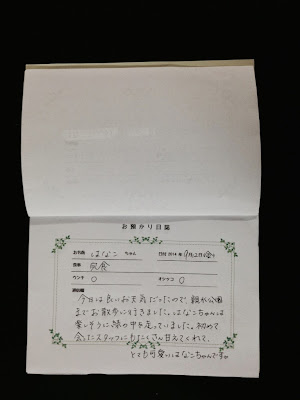 お預かり日誌
お名前 はなこ ちゃん 日付 2014年 9月
食事 完食
ウンチ ○ オシッコ ○
今日は良いお天気だったので、親水公園
までお散歩に行きました。はなこちゃんは
楽しそうに緑の中を走っていました。初めて
会ったスタッフにもたくさん甘えてくれて、
とても可愛いはなこちゃんです。